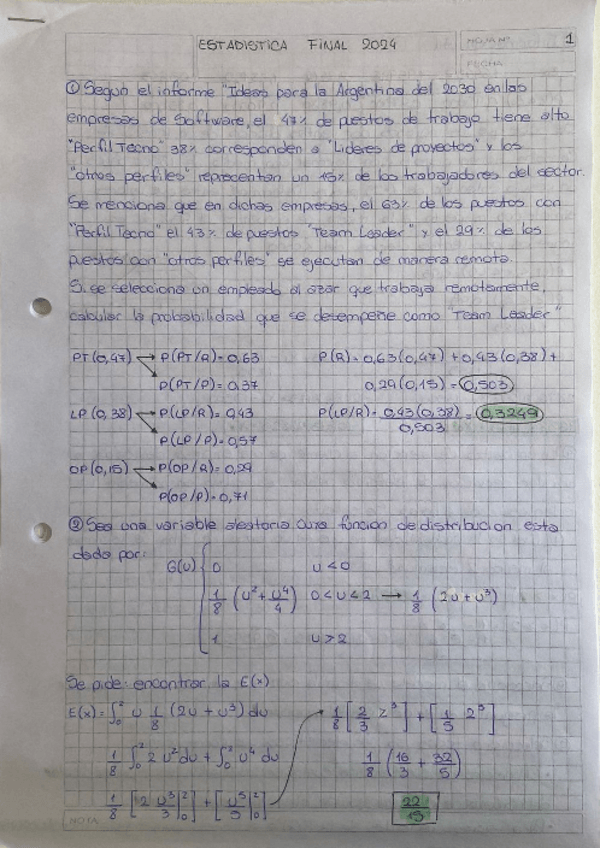 ESTADISTICA FINAL 2024
HOJA Nº 1
FECHA
① Segun el informe "Ideas para la Argentina del 2030 en las
empresas de Software, el 47% de puestos de trabajo tiene alto
"Perfil Tecno" 38% corresponden a "Lideres de proyectos" y los
"otros perfiles" representan un 15% de los trabajadores del sector.
Se menciona que en dichas empresas, el 63% de los puestos con
"Perfil Tecno" el 43% de puestos "Team Leader" y el 29% de los
puestos con "otros perfiles" se ejecutan de manera remota.
Si se selecciona un empleado al azar que trabaja remotamente,
calcular la probabilidad que se desempeñe como "Team Leader"
PT (0,47) → P(PT/R)= 0,63 P(R)= 0,63(0,47) + 0,43(0,38) +
P(PT/P)= 0,37 0,29(0,15) = 0,503
LP (0,38) → P(LP/R)= 0,43 P(LP/R)= 0,43(0,38) / 0,503 = 0,3249
P(LP/P)= 0,57
OP (0,15) → P(OP/R)= 0,29
P(OP/P)= 0,71
② Sea una variable aleatoria cuya funcion de distribucion esta
dada por:
G(u) { 0 u<0
1/8 (u² + u⁴/4) 0<u<2 → 1/8 (2u + u³)
1 u>2
Se pide: encontrar la E(x)
E(x)= ∫₀² u 1/8 (2u + u³) du → 1/8 [2/3 2³] + [1/5 2⁵]
1/8 ∫₀² 2u² du + ∫₀² u⁴ du 1/8 (16/3 + 32/5)
1/8 [2 u³/3 |₀²] + [u⁵/5 |₀²] 22/15
NOTA